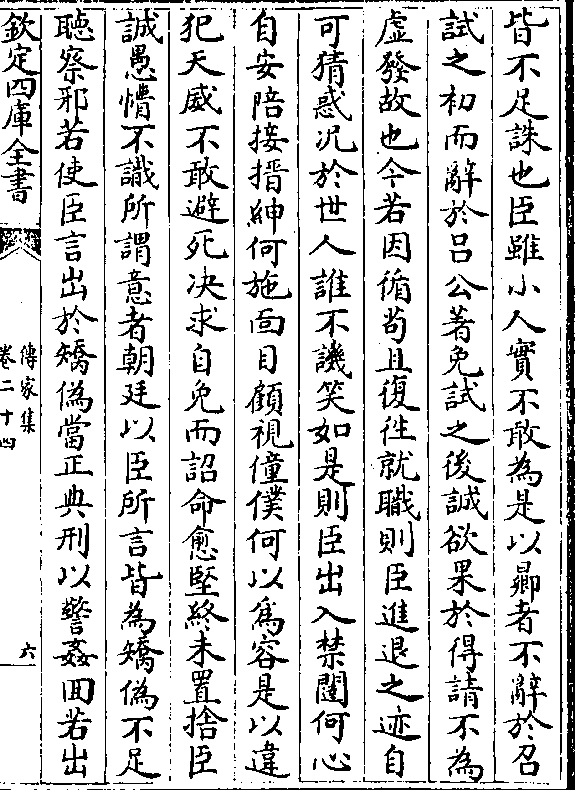 皆不足誅也臣雖小人實不敢為是以曏者不辭於召
試之初而辭於呂公著免試之後誠欲果於得請不為
虛發故也今若因循苟且復徃就職則臣進退之迹自
可猜惑况於世人誰不譏笑如是則臣出入禁闥何心
自安陪接搢紳何施面目顧視僮僕何以為容是以違
犯天威不敢避死决求自免而詔命愈堅終未置捨臣
誠愚懵不識所謂意者朝廷以臣所言皆為矯偽不足
聽察邪若使臣言出於矯偽當正典刑以警姦回若出
欽定四庫全書
傳家集
卷二十四
六